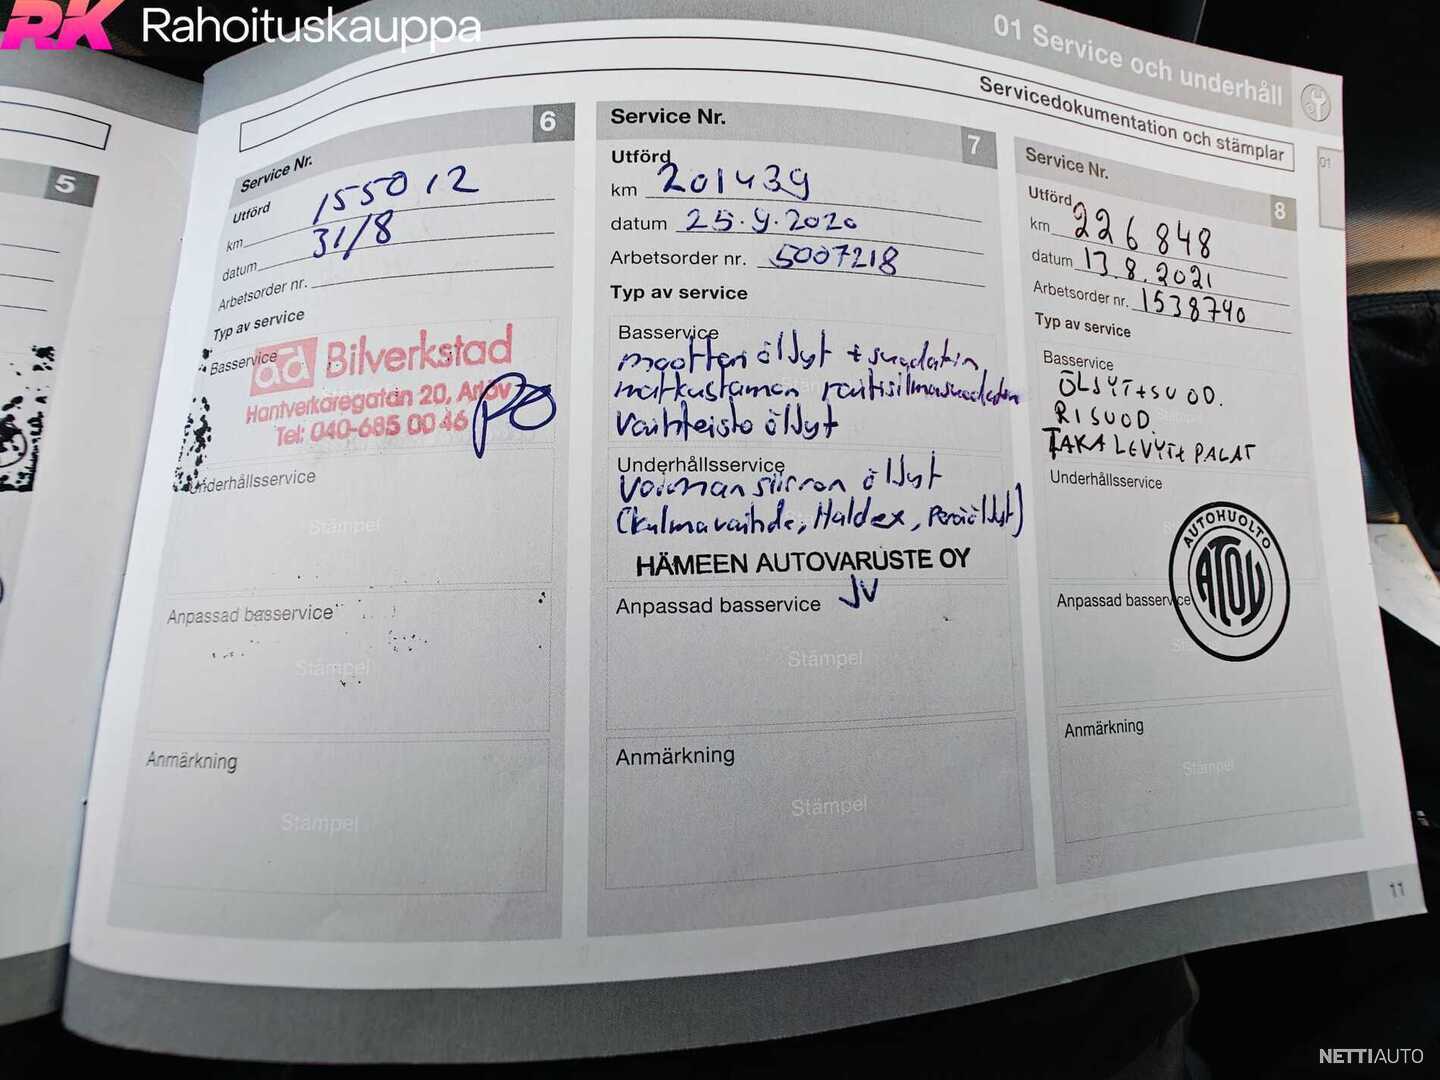 RK Rahoituskauppa
01 Service och underhåll
Servicedokumentation och stämplar
01
5
Service Nr. 6
Utförd
km 155012
datum 31/8
Arbetsorder nr.
Typ av service
Basservice
ad Bilverkstad
Hantverkaregatan 20, Arlöv
Tel: 040-685 00 46
PO
Underhållsservice
Stämpel
Anpassad basservice
Stämpel
Anmärkning
Stämpel
Service Nr. 7
Utförd
km 201439
datum 25.9.2020
Arbetsorder nr. 5007218
Typ av service
Basservice
moottoriöljyt + suodatin
matkustamon raitisilmasuodatin
Vaihteisto öljyt
Underhållsservice
Voimansiirron öljyt
(kulmavaihde, Haldex, Peräöljyt)
HÄMEEN AUTOVARUSTE OY
JV
Anpassad basservice
Stämpel
Anmärkning
Stämpel
Service Nr. 8
Utförd
km 226 848
datum 13.8.2021
Arbetsorder nr. 1538740
Typ av service
Basservice
ÖLJYT+SUOD.
RISUOD.
TAKA LEVYT+ PALAT
Underhållsservice
AUTOHUOLTO
ATOY
Anpassad basservice
Anmärkning
Stämpel
11
NETTIAUTO